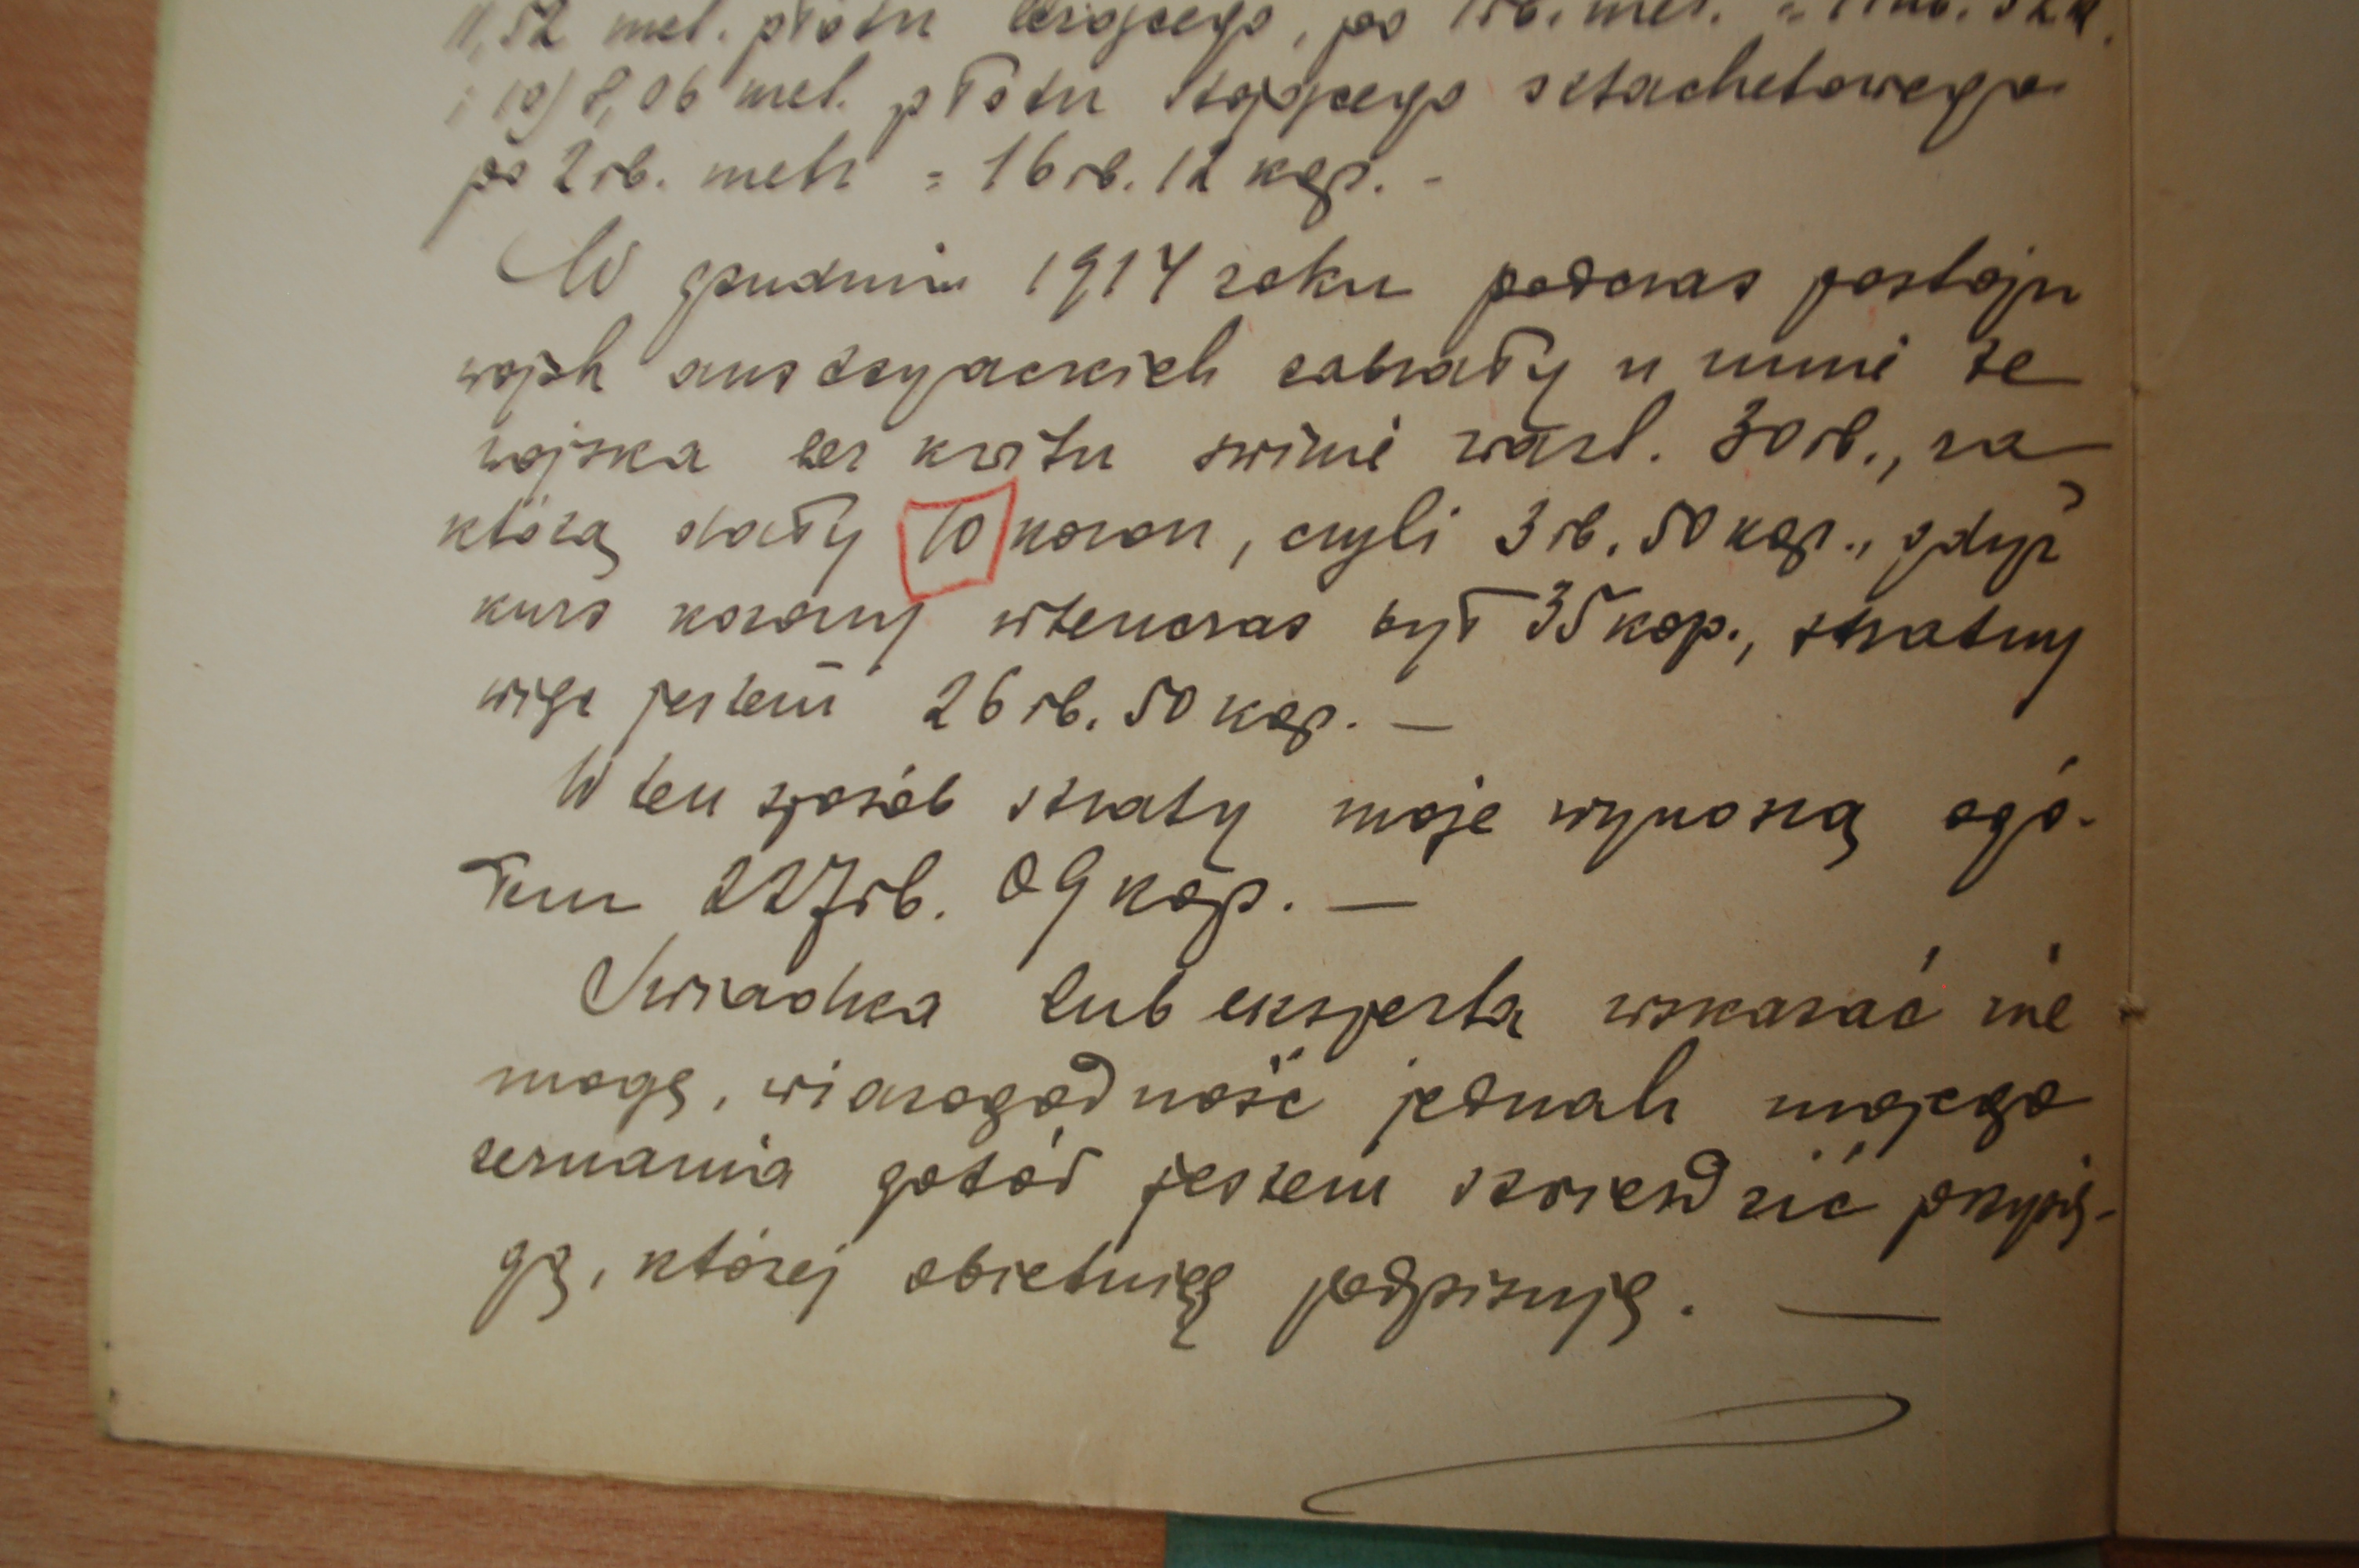 11,52 met. płotu leżącego, po 1 rb. met. = 11 rb. 52 k.
i 10) 8,06 met. płotu stojącego sztachetowego
po 2 rb. metr = 16 rb. 12 kop. -
W grudniu 1914 roku podczas postoju
wojsk austryackich zabrały u mnie te
wojska bez kwitu świnię wart. 30 rb., za
którą dały 10 koron, czyli 3 rb. 50 kop., gdyż
kurs korony wtenczas był 35 kop., stratny
więc jestem 26 rb. 50 kop. —
W ten sposób straty moje wynoszą ogó-
łem 227 rb. 09 kop. —
Świadka lub eksperta wskazać nie
mogę, wiarogodność jednak mojego
zeznania gotów jestem stwierdzić przysię-
gą, której obietnicę podpisuję. —